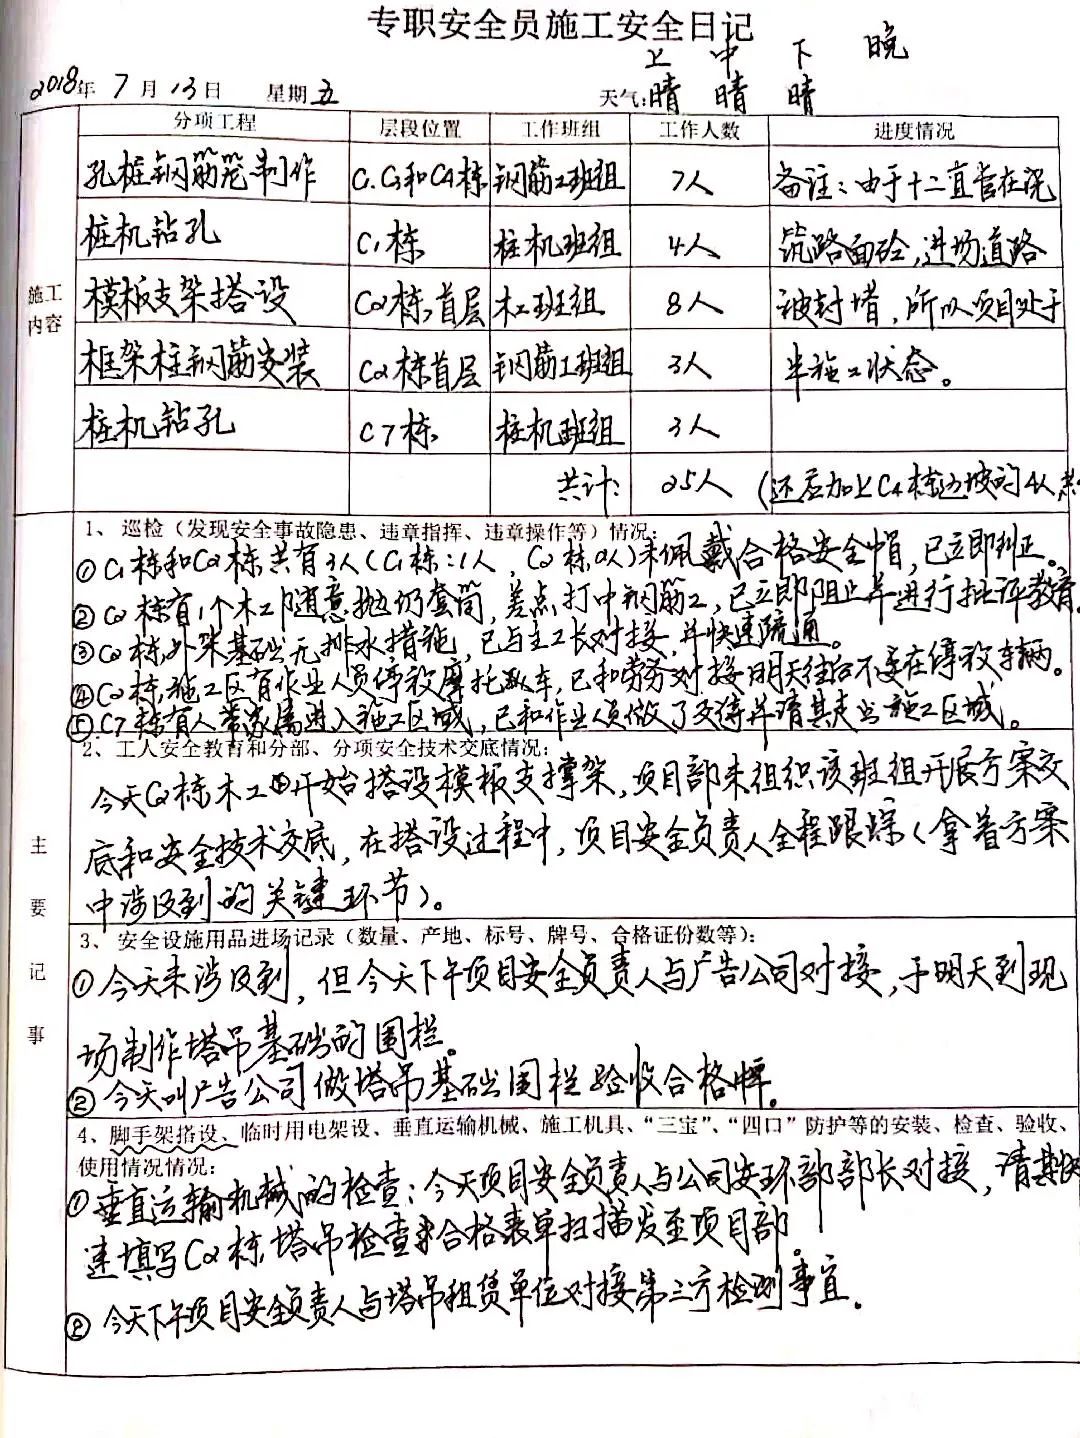 专职安全员施工安全日记
上 中 下 晚
2018年 7月 13日 星期五 天气:晴 晴 晴
分项工程 层段位置 工作班组 工作人数 进度情况
孔桩钢筋笼制作 C1.C3和C4栋 钢筋工班组 7人 备注:由于十二直管在浇
桩机钻孔 C1栋 桩机班组 4人 筑路面砼,进场道路
施工
内容
模板支架搭设 C2栋,首层 木工班组 8人 被封堵,所以项目处于
框架柱钢筋安装 C2栋首层 钢筋工班组 3人 半施工状态。
桩机钻孔 C7栋 桩机班组 3人
共计: 25人 (还应加上C4栋边坡的4人
1、巡检(发现安全事故隐患、违章指挥、违章操作等)情况:
①C1栋和C2栋共有3人(C1栋:1人,C2栋2人)未佩戴合格安全帽,已立即纠正。
②C2栋有1个木工随意抛扔套筒,差点打中钢筋工,已立即阻止并进行批评教育。
③C2栋,外架基础无排水措施,已与主工长对接,并快速疏通。
④C2栋,施工区有作业人员停放摩托车,已和劳务对接明天往后不要在停放车辆。
⑤C7栋有人带家属进入施工区域,已和作业人员做了交待并请其走出施工区域。
2、工人安全教育和分部、分项安全技术交底情况:
今天C2栋木工开始搭设模板支撑架,项目部未组织该班组开展方案交
底和安全技术交底,在搭设过程中,项目安全负责人全程跟踪(拿着方案
中涉及到的关键环节)。
主要记事
3、安全设施用品进场记录(数量、产地、标号、牌号、合格证份数等):
①今天未涉及到,但今天下午项目安全负责人与广告公司对接,于明天到现
场制作塔吊基础的围栏。
②今天叫广告公司做塔吊基础围栏验收合格牌。
4、脚手架搭设、临时用电架设、垂直运输机械、施工机具、“三宝”、“四口”防护等的安装、检查、验收、
使用情况情况:
①垂直运输机械的检查:今天项目安全负责人与公司安环部部长对接,请其快
速填写C2栋,塔吊检查合格表单扫描发至项目部。
②今天下午项目安全负责人与塔吊租赁单位对接第三方检测事宜。